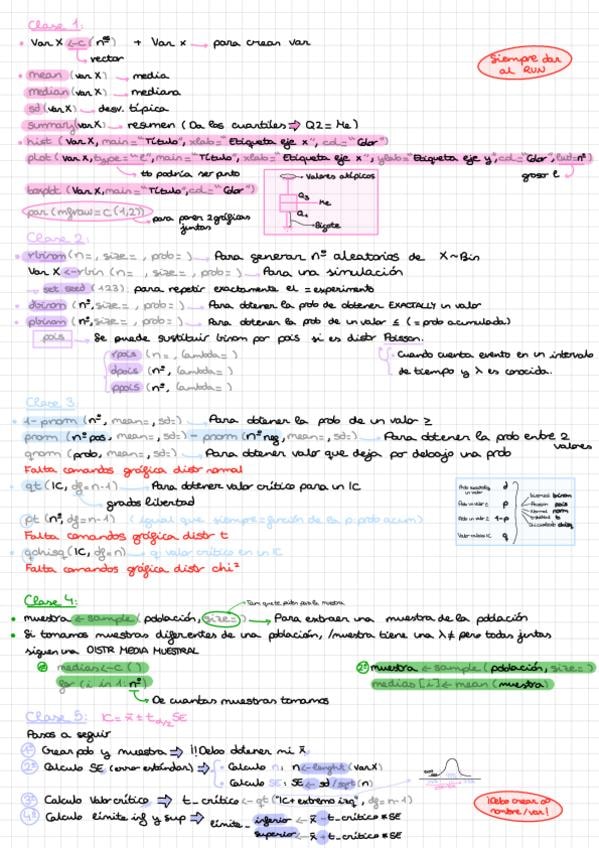 Clase 1:
• Var X <-c(nºs) + Var x → para crear var
vector
Siempre dar al RUN
• mean (var X) → media
median (var X) → mediana
sd (var X) → desv. típica
summary (var X) → resumen (Da los cuartiles ⇒ Q2 = Me)
• hist (Var X, main="Título", xlab="Etiqueta eje x", col="Color")
plot (Var X, type="l", main="Título", xlab="Etiqueta eje x", ylab="Etiqueta eje y", col="Color", lwd=nº)
tb podría ser pnto
grosor l
boxplot (Var X, main="Título", col="Color")
Valores atípicos
Q3
Me
Q1
Bigote
par (mfraw=c(1,2)) → para poner 2 gráficas juntas
Clase 2:
• rbinom (n=, size= , prob= ) → Para generar nº aleatorios de X~Bin
Var X <-rbin (n= , size= , prob= ) → Para una simulación
set.seed (123): para repetir exactamente el = experimento
• dbinom (nº, size= , prob= ) → Para obtener la prob de obtener EXACTALLY un valor
• pbinom (nº, size= , prob= ) → Para obtener la prob de un valor ≤ (= prob acumulada)
pois → Se puede sustituir binom por pois si es distr Poisson.
rpois (n= , lambda= )
dpois (nº, lambda= )
ppois (nº, lambda= )
· Cuando cuenta evento en un intervalo de tiempo y λ es conocida.
Clase 3:
• 1-pnorm (nº, mean=, sd=) → Para obtener la prob de un valor ≥
pnorm (nº pos, mean=, sd=) - pnorm (nº neg, mean=, sd=) → Para obtener la prob entre 2 valores
qnorm (prob, mean=, sd=) → Para obtener valor que deja por debajo una prob
Falta comandos gráfica distr normal
• qt (IC, df=n-1) → Para obtener valor crítico para un IC
grados libertad
pt (nº, df=n-1) (igual que siempre = función de la p: prob acum)
Falta comandos gráfica distr t
• qchisq (IC, df=n) → qi valor crítico en un IC
Falta comandos gráfica distr chi²
d
p
1-p
q
binom
pois
norm
t
chisq
Clase 4:
• muestra <- sample (población, size= ) → Para extraer una muestra de la población
• Si tomamos muestras diferentes de una población, /muestra tiene una λ ≠ pero todas juntas
siguen una DISTR MEDIA MUESTRAL
1º medias <-c ( )
for (i in 1: nº)
De cuantas muestras tomamos
2º muestra <- sample (población, size= )
medias [i] <- mean (muestra)
Clase 5: IC = x̄ ± t α/2 SE
Pasos a seguir
1º Crear pob y muestra ⇒ ¡!Debo obtener mi x̄
2º Calculo SE (error estándar) ⇒ · Calculo n: n <-lenght (var X)
· Calculo SE: SE <- sd / sqrt (n)
3º Calculo Valor crítico ⇒ t_crítico <- qt ("IC + extremo izq", df=n-1)
4º Calculo límite inf y sup ⇒ límite_ inferior <- x̄ - t_crítico * SE
superior <- x̄ + t_crítico * SE
¡Debo crear co nombre/var!